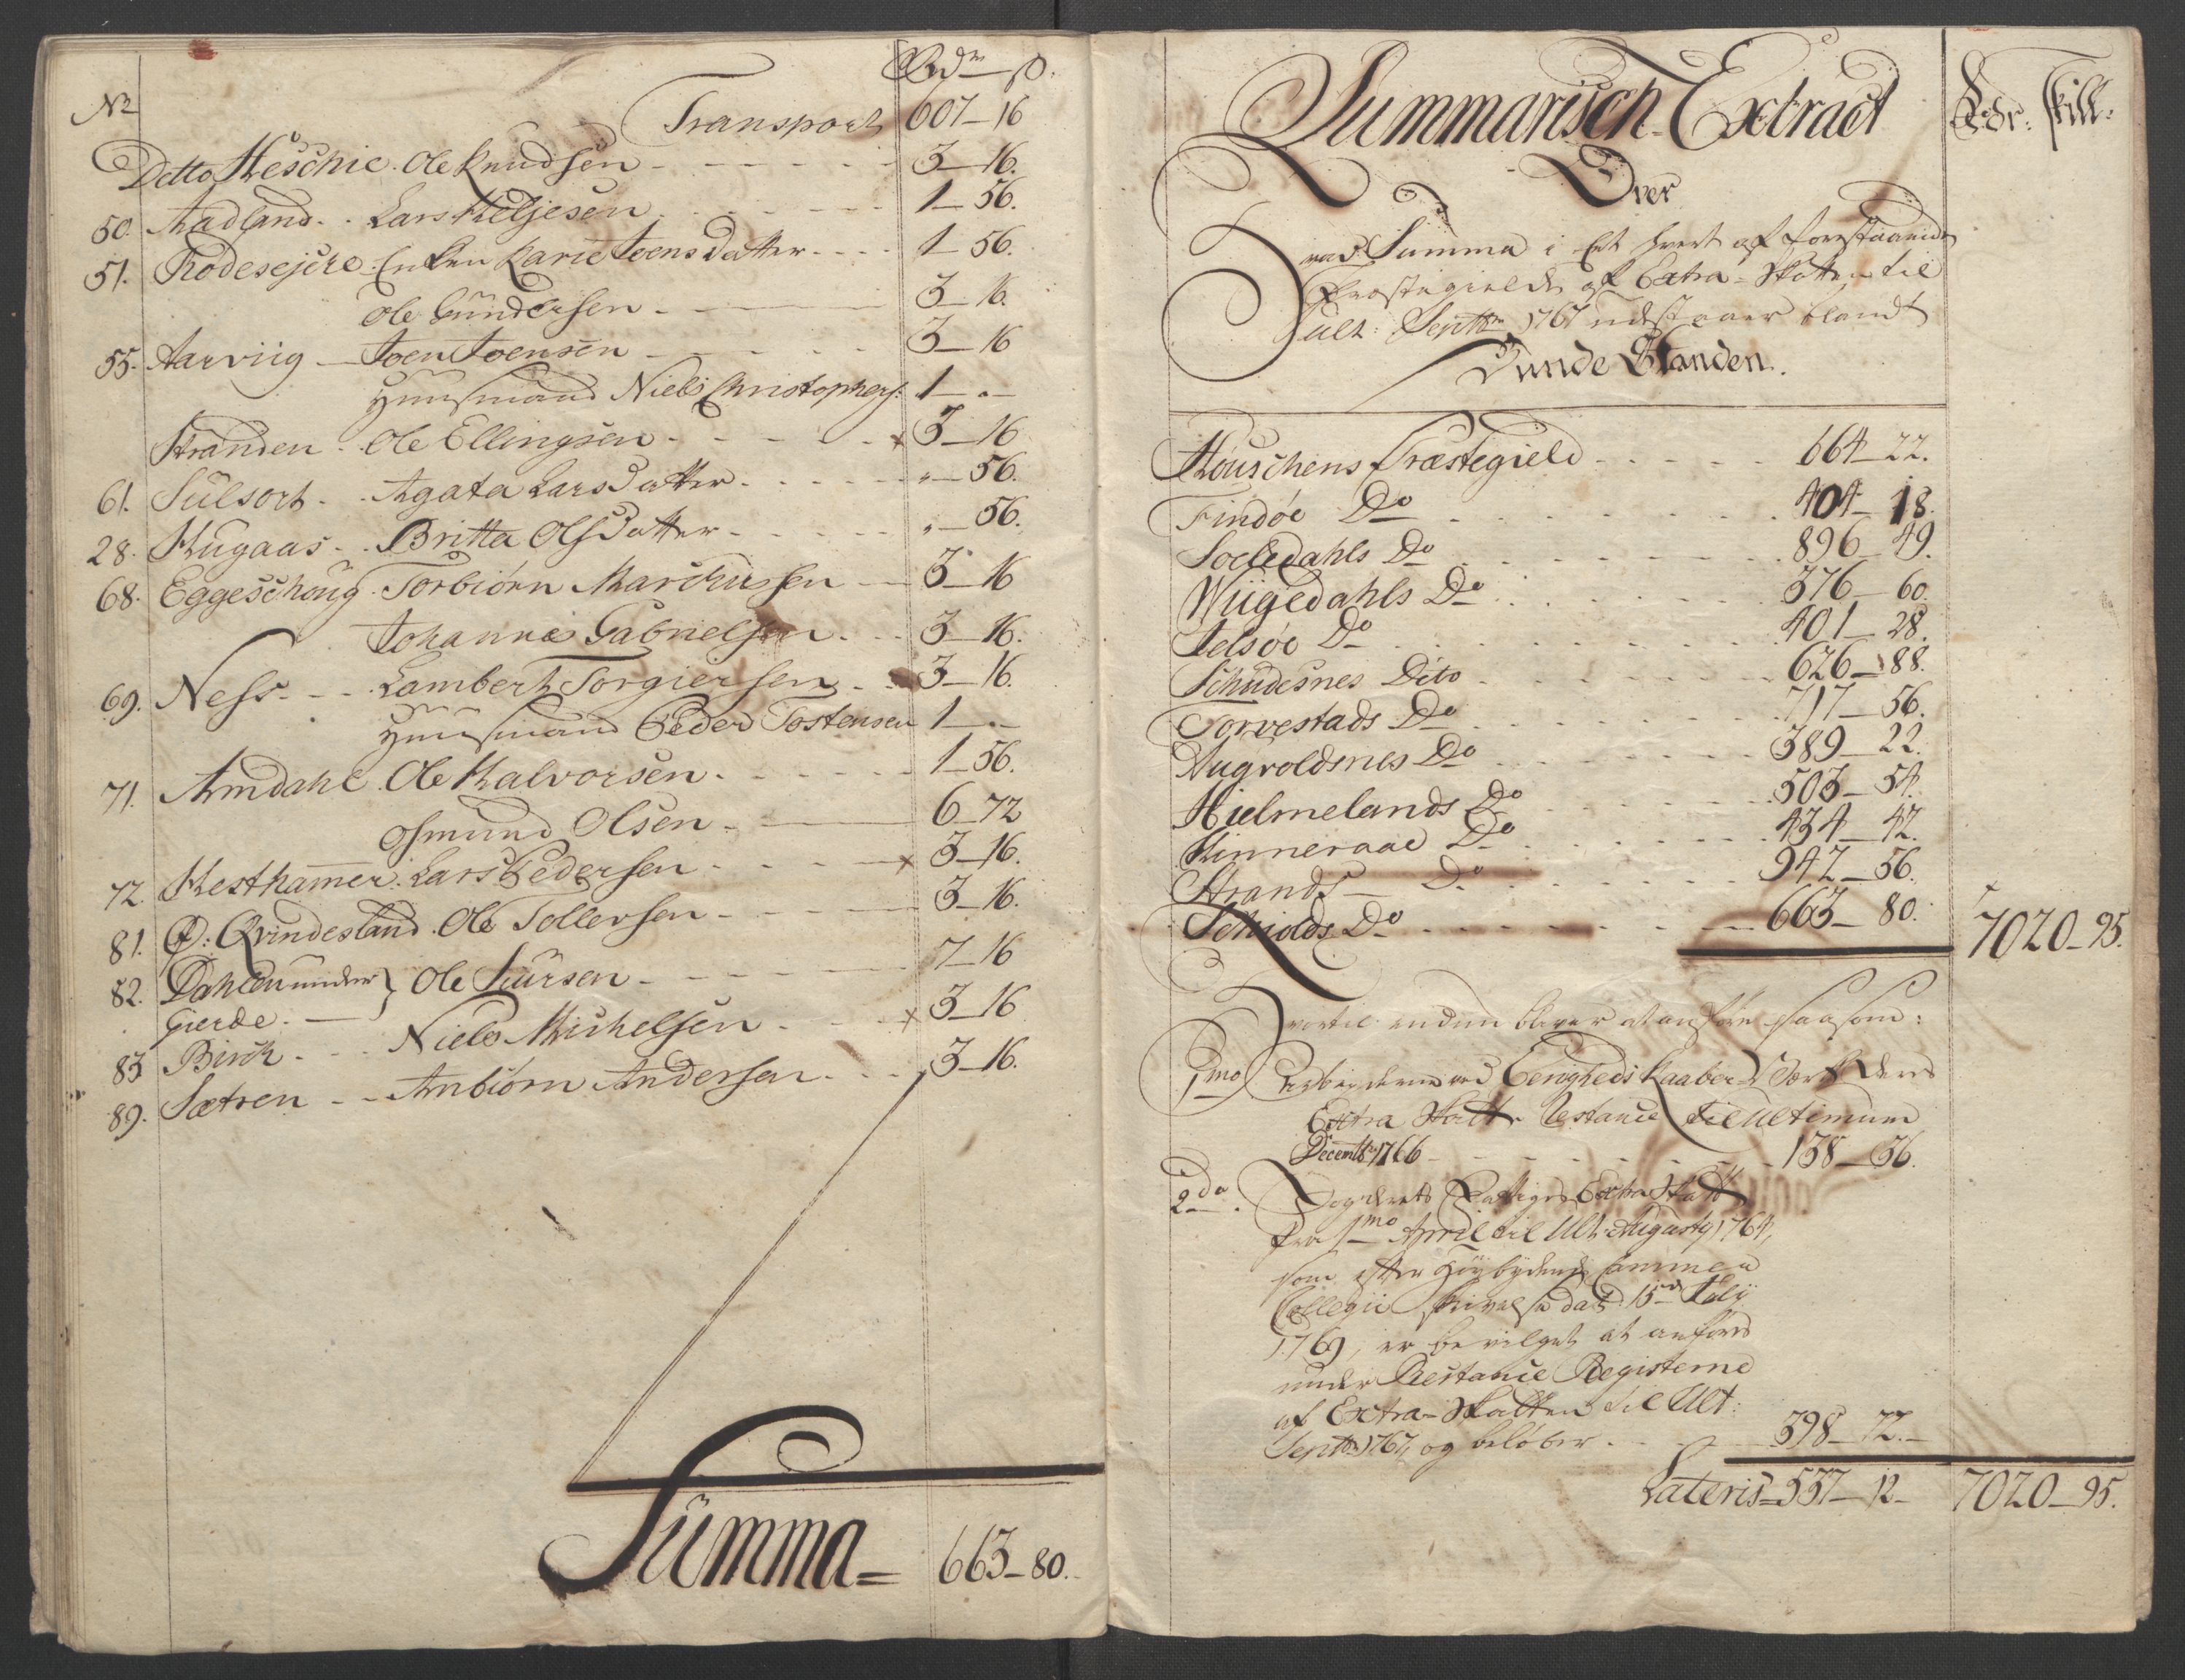 No Rdr ß.
Transport 607 – 16
Detto Heschie. Ole Knudsen 3 – 16.
50. Aadland. Lars Heljesen 1 – 56.
51. Rodesejere. Enken Karie Joens Datter 1 – 56.
Ole Gundersen 3 – 16.
55. Aarviig Joen Joensen 3 – 16
Huusmand Niels Christophers: 1 – „ –
Stranden Ole Ellingsen x 3 – 16
61. Sulsort Agata Lars Datter „ – 56.
28. Hugaas Britta Ols Datter „ – 56.
68. Eggeschoug Torbiörn Marckussen 3 – 16
Johannes Gabrielsen 3 – 16.
69. Ness Lambert Torgiersen 3 – 16.
Huusmand Peder Tostensen 1 – „ –
71. Amdahl Ole Halvorsen 1 – 56.
Osmund Olsen 6 – 72
72. Hesthammer. Lars Pedersen x 3 – 16.
81. Ø: Qvindesland Ole Tollevsen 3 – 16.
82. Dahlen under } Ole Siursen 7 – 16
Gierde.
83 Birch Niels Michelsen x 3 – 16
89. Sætren Anbiörn Andersen 3 – 16.
Summa = 663 – 80.
Summarisch Extract Rdr: skill:
Over
hvad Summa i Eet hvert af forestaaende
Præstegield af Extra-Skatten til
ult: Septbr 1767 udestaaer blandt
Bunde Standen.
Houschens Præstegield 664 – 22.
Findöe Do 404 – 18.
Soeledahls Do 896 – 49.
Wiigedahls Do 376 – 60.
Jelsöe Do 401 – 28.
Schudesnes Dito 626 – 88.
Torvestads Do 717 – 56.
Augvoldsnes Do 389 – 22.
Hielmelands Do 503 – 54.
Hinneraae Do 434 – 42.
Strands Do 942 – 56.
Schiolds Do 663 – 80. 7020 – 95.
hvortil endnu bliver at anföre saasom:
1mo Arbeiderne ved Eenigheds Kaaber Værk deres
Extra Skatts Restance til Ultimum
Decembr 1766 138 – 36.
2do. Fogderiets Extra Skatt
fra 1mo April til Ult: Augusty 1764,
som efter Höybydende Cammer
Collegii Skrivelse dat: 15de July
1769, er bevilget at anföres
under Restance Registerne
af Extra-Skatten til Ult:
Septbr 1767, og belöber 398 – 72.
Lateris = 537 – 12 – 7020 – 95.